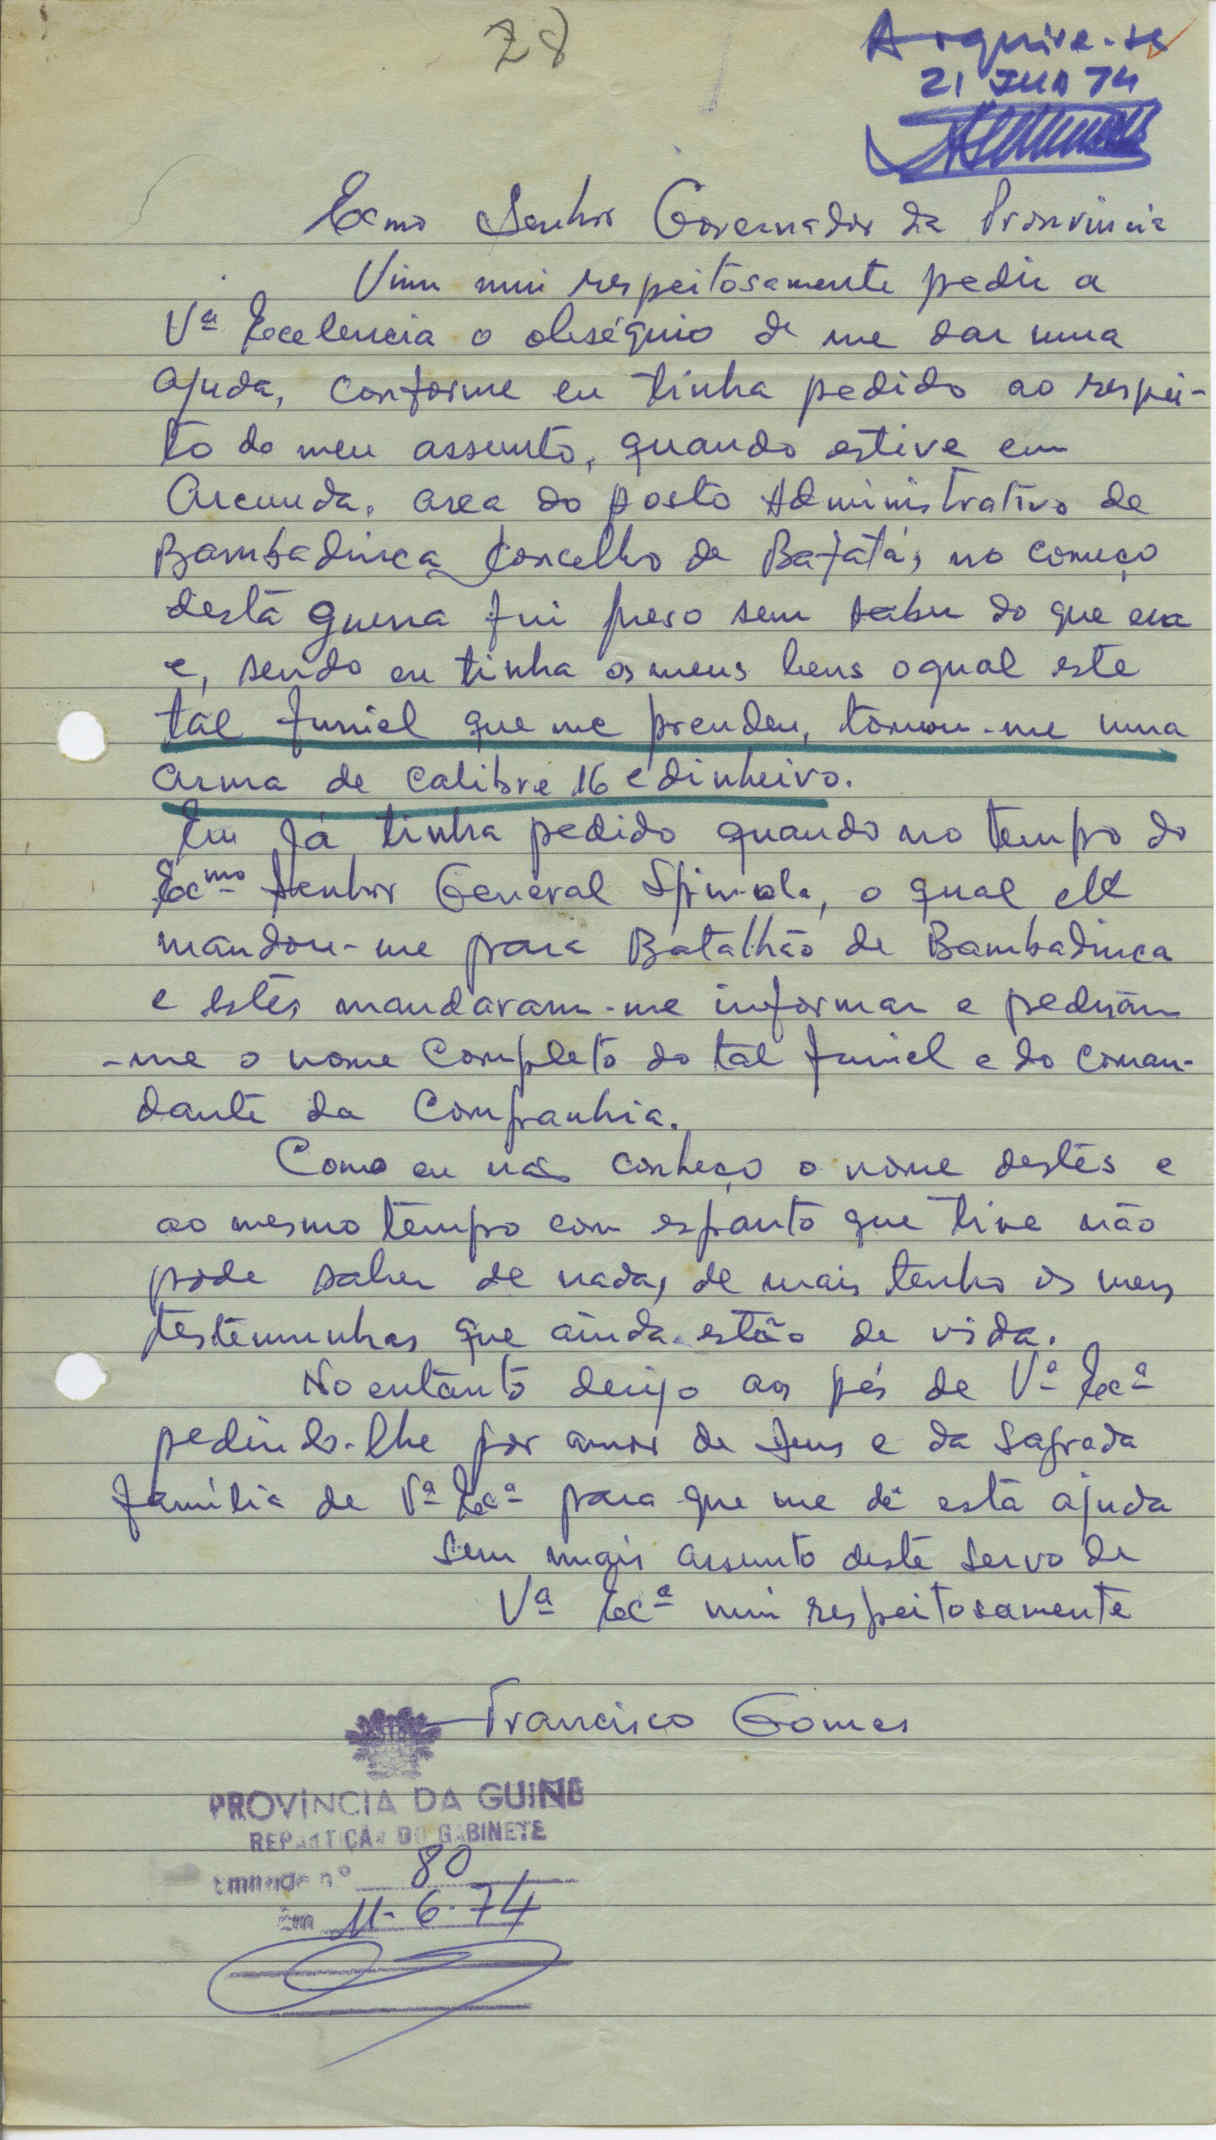 28
Arquive-se
21 JUN 74
Exmo Senhor Governador da Provincia
Vim mui respeitosamente pedir a
Vª Excelencia o obséquio de me dar uma
ajuda, conforme eu tinha pedido ao respei-
to do meu assunto, quando estive em
area do posto Administrativo de
Bambadinca, Concelho de Bafatá, no começo
desta guerra fui preso sem saber do que era
e, sendo eu tinha os meus bens o qual este
tal furriel que me prendeu, tomou-me uma
arma de calibre 16 e dinheiro.
Eu já tinha pedido quando no tempo do
Excmo Senhor General Spinola, o qual ele
mandou-me para Batalhão de Bambadinca
e estes mandaram-me informar e pediram
-me o nome completo do tal furriel e do coman-
dante da Companhia.
Como eu não conheço o nome destes e
ao mesmo tempo com espanto que tive não
pode saber de nada, de mais tenho os meus
testemunhas que ainda estão de vida.
No entanto derijo aos pés de Vª Excª
pedindo-lhe por amor de Deus e da Sagrada
família de Vª Excª para que me dê esta ajuda
Sem mais assunto deste servo de
Vª Excª mui respeitosamente
Francisco Gomes
PROVÍNCIA DA GUINÉ
REPARTIÇÃO DO GABINETE
Entrada nº 80
Em 11-6-74